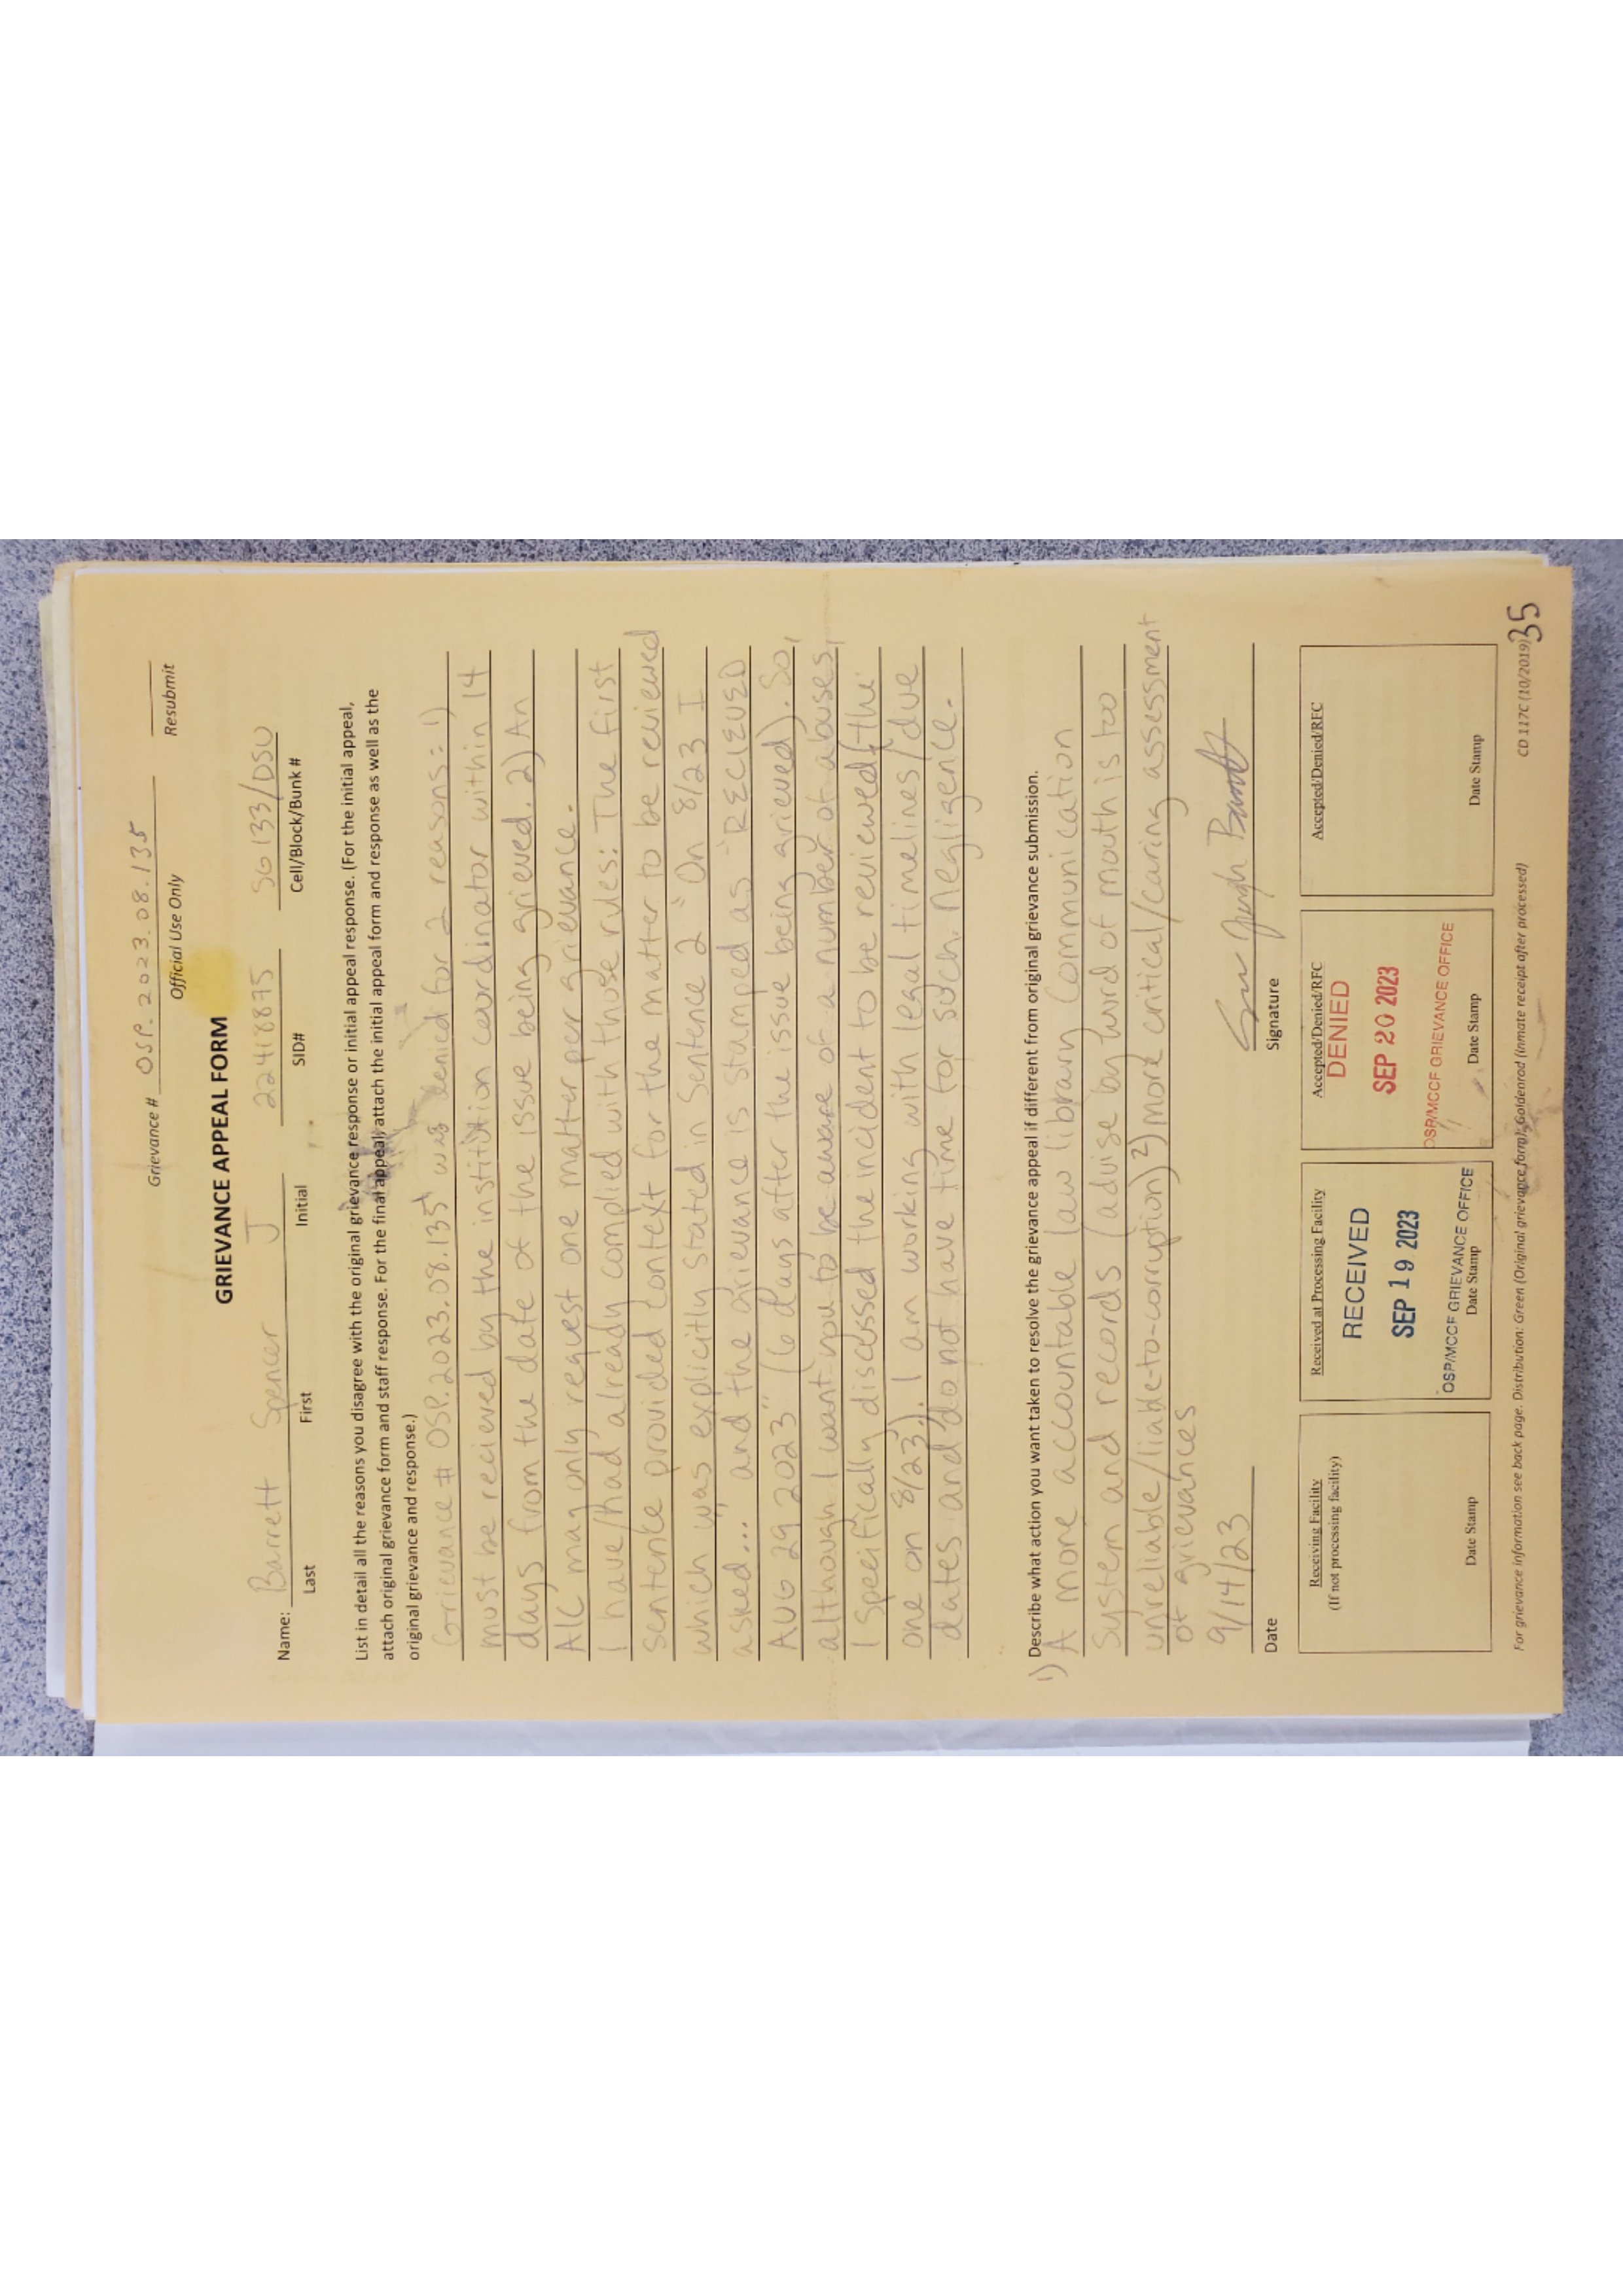 Grievance # OSP.2023.08.135
Official Use Only
Resubmit
GRIEVANCE APPEAL FORM
Name: Barrett Spencer J 22418875 SG133/DSU
Last First Initial SID# Cell/Block/Bunk #
List in detail all the reasons you disagree with the original grievance response or initial appeal response. (For the initial appeal,
attach original grievance form and staff response. For the final appeal, attach the initial appeal form and response as well as the
original grievance and response.)
Grievance # OSP.2023.08.135 was denied for 2 reasons: 1)
must be recieved by the institution coordinator within 14
days from the date of the issue being grieved. 2) An
AIC may only request one matter per grievance.
I have/had already complied with those rules: The first
sentence provided context for the matter to be reviewed
which was explicitly stated in sentence 2 "On 8/23 I
asked..." and the grievance is stamped as "RECIEVED
AUG 29 2023" (6 days after the issue being grieved). So,
although I want you to be aware of a number of abuses,
I specifically discussed the incident to be reviewed (the
one on 8/23). I am working with legal timelines/due
dates and do not have time for such negligence.
Describe what action you want taken to resolve the grievance appeal if different from original grievance submission.
1) A more accountable law library communication
system and records (advise by word of mouth is too
unreliable/liable-to-corruption) 2) more critical/caring assessment
of grievances
9/14/23
Date Signature
Receiving Facility
(If not processing facility)
Date Stamp
Received at Processing Facility
RECEIVED
SEP 19 2023
OSP/MCCF GRIEVANCE OFFICE
Date Stamp
Accepted/Denied/RFC
DENIED
SEP 20 2023
OSP/MCCF GRIEVANCE OFFICE
Date Stamp
Accepted/Denied/RFC
Date Stamp
For grievance information see back page. Distribution: Green (Original grievance form); Goldenrod (Inmate receipt after processed) CD 117C (10/2019)
35